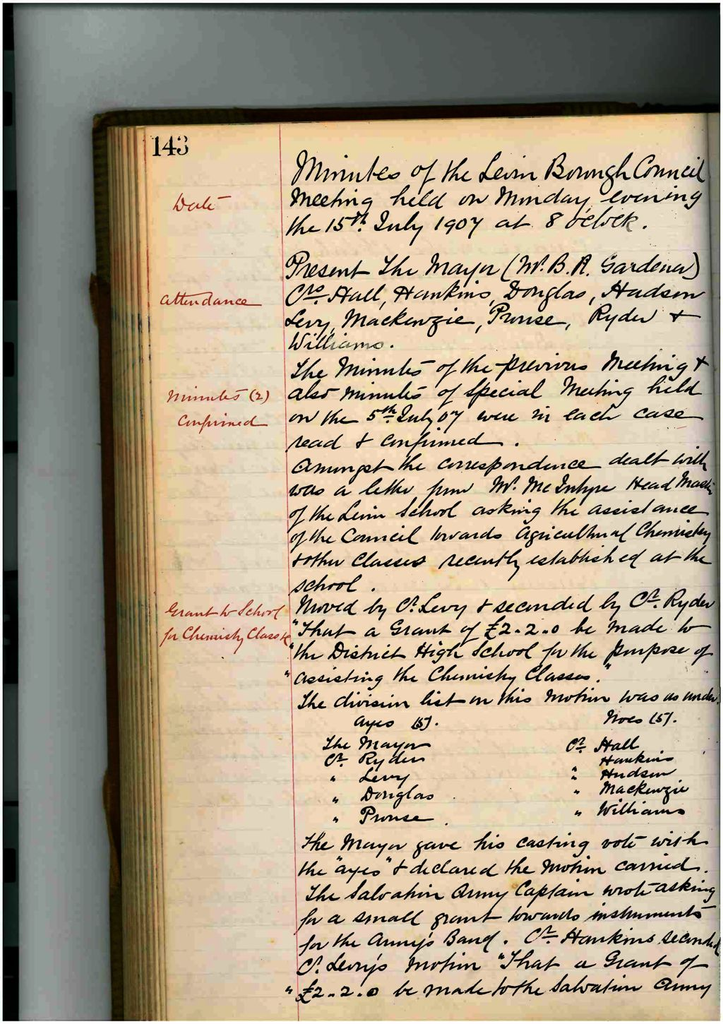 143
Minutes of the Levin Borough Council
Date
Meeting held on Monday evening
the 15th July 1907 at 8 o'clock.
Present The Mayor (Mr. B. R. Gardener)
attendance
Crs. Hall, Hankins, Douglas, Hudson
Levy, Mackenzie, Prouse, Ryder &
Williams.
The Minutes of the previous Meeting &
Minutes (2)
also minutes of Special Meeting held
Confirmed
on the 5th July 07 were in each case
read & confirmed.
Amongst the correspondence dealt with
was a letter from Mr. McIntyre Head Master
of the Levin School asking the assistance
of the Council towards Agricultural Chemistry
& other Classes recently established at the
School.
Grant to School
Moved by Cr. Levy & seconded by Cr. Ryder
for Chemistry Class
"That a Grant of £2-2-0 be made to
"the District High School for the purpose of
"assisting the Chemistry Classes."
The division list on this Motion was as under
Ayes (5). Noes (5).
The Mayor Cr. Hall
Cr. Ryder " Hankins
" Levy " Hudson
" Douglas " Mackenzie
" Prouse " Williams
The Mayor gave his casting vote with
the "ayes" & declared the Motion carried.
The Salvation Army Captain wrote asking
for a small grant towards instruments
for the Army's Band. Cr. Hankins seconded
Cr. Levy's Motion "That a Grant of
"£2-2-0 be made to the Salvation Army